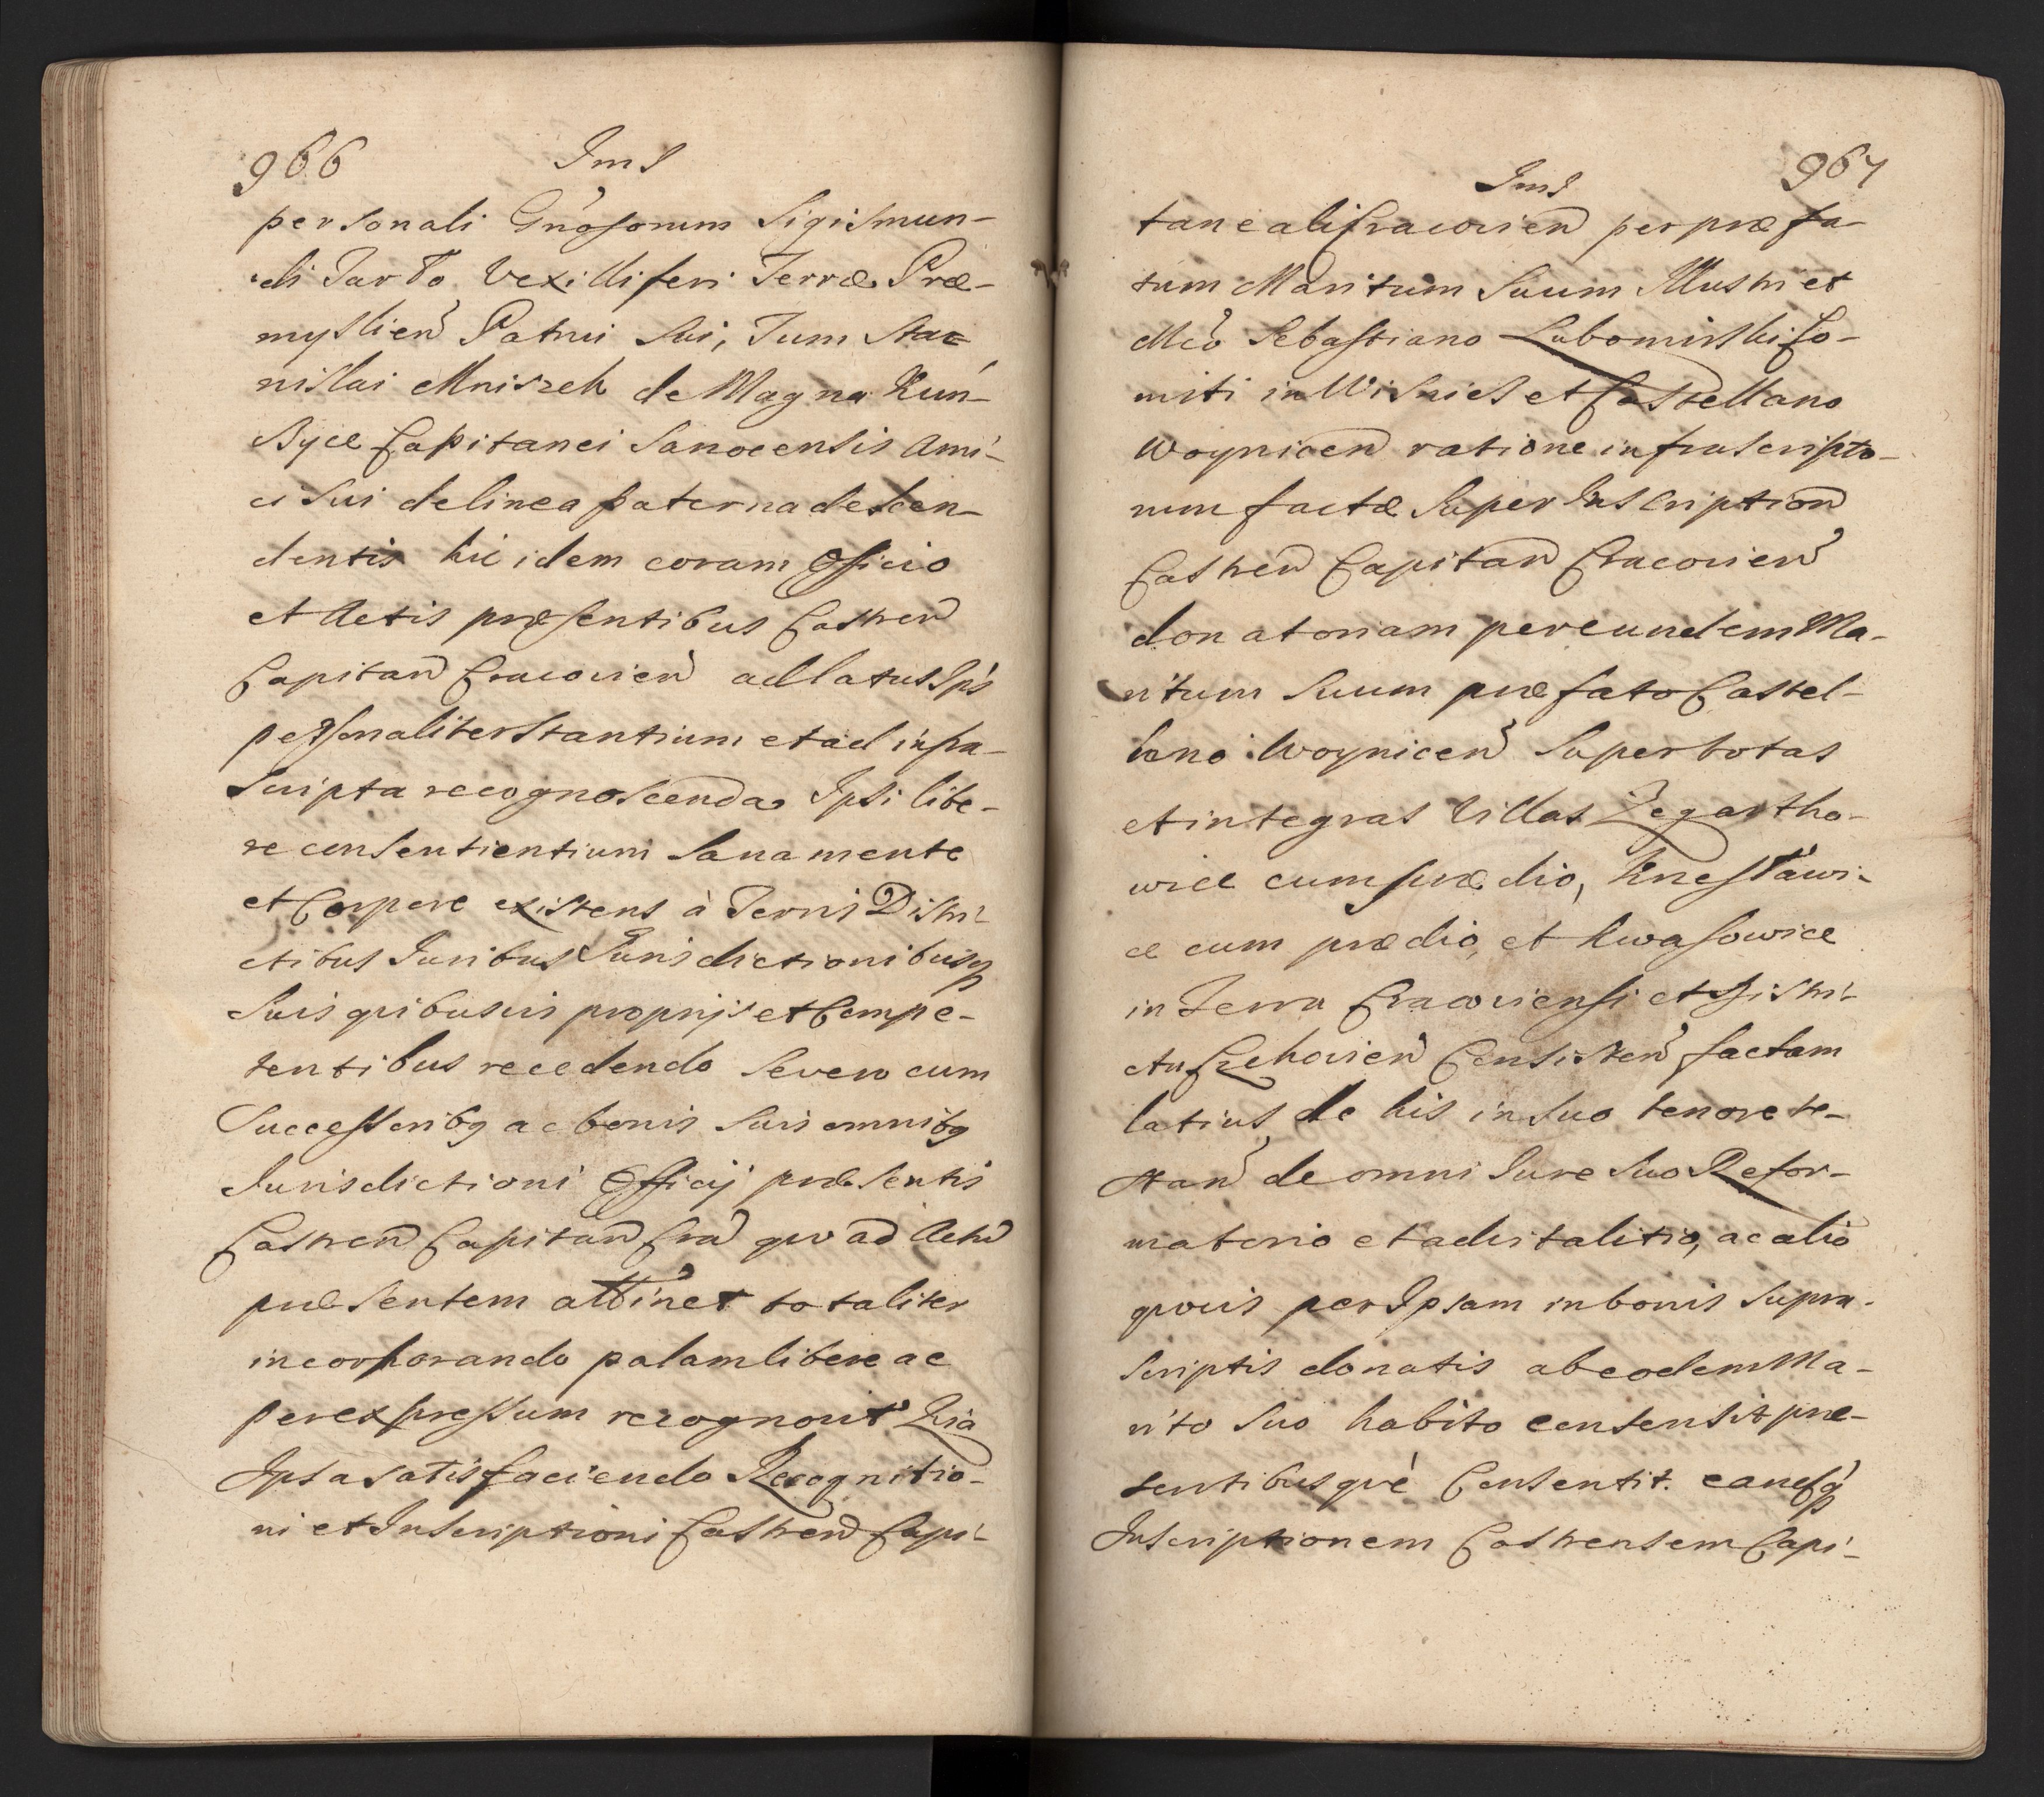 966 Ims
personali Gnosorum Sigismun-
di Tarło Vexilliferi Terræ Præ-
myslien Patrui Sui, Tum Sta-
nislai Mniszek de Magna Kun-
czyce Capitanei Sanocensis Ami-
ci Sui de linea paterna descen-
dentis hic idem coram Officio
et Actis præsentibus Castren
Capitan Cracovien ad latus Ips
personaliter stantium et ad infra-
scripta recognoscenda Ipsi libe-
re consentientium Sana mente
et Corpore existens à Terris Distri-
ctibus Iuribus Iurisdictionibusq
Suis quibusvis proprijs et Compe-
tentibus recedendo Se vero cum
Successoribq ac bonis Suis omnibq
Iurisdictioni Officij præsentis
Castren Capitan Cra quo ad Actu
præsentem attinet totaliter
incorporando palam libere ac
per expressum recognovit Quia
Ipsa satisfaciendo Recognitio-
ni et Inscriptioni Castren Capi-
Ims 967
taneali Cracovien per præfa-
tum Maritum Suum Illustri et
Mco Sebastiano Lubomirski Co-
miti in Wisnicz et Castellano
Woynicen ratione infrascripto-
rum factæ Super Inscription
Castren Capitan Cracovien
donatoriam per eundem Ma-
ritum Suum præfato Castel-
lano Woynicen Super totas
et integras Villas Zegartho-
wice cum prædio, Knesławi-
ce cum prædio, et Kwasowice
in Terra Cracoviensi et Distri-
ctu Lelovien Consisten factam
latius de his in Suo tenore te-
stan de omni Iure Suo Refor-
matorio et advitalitio, ac alio
quovis per Ipsam in bonis Supra-
scriptis donatis ab eodem Ma-
rito Suo habito consensit præ-
sentibusquè Consentit. eandq
Inscriptionem Castrensem Capi-